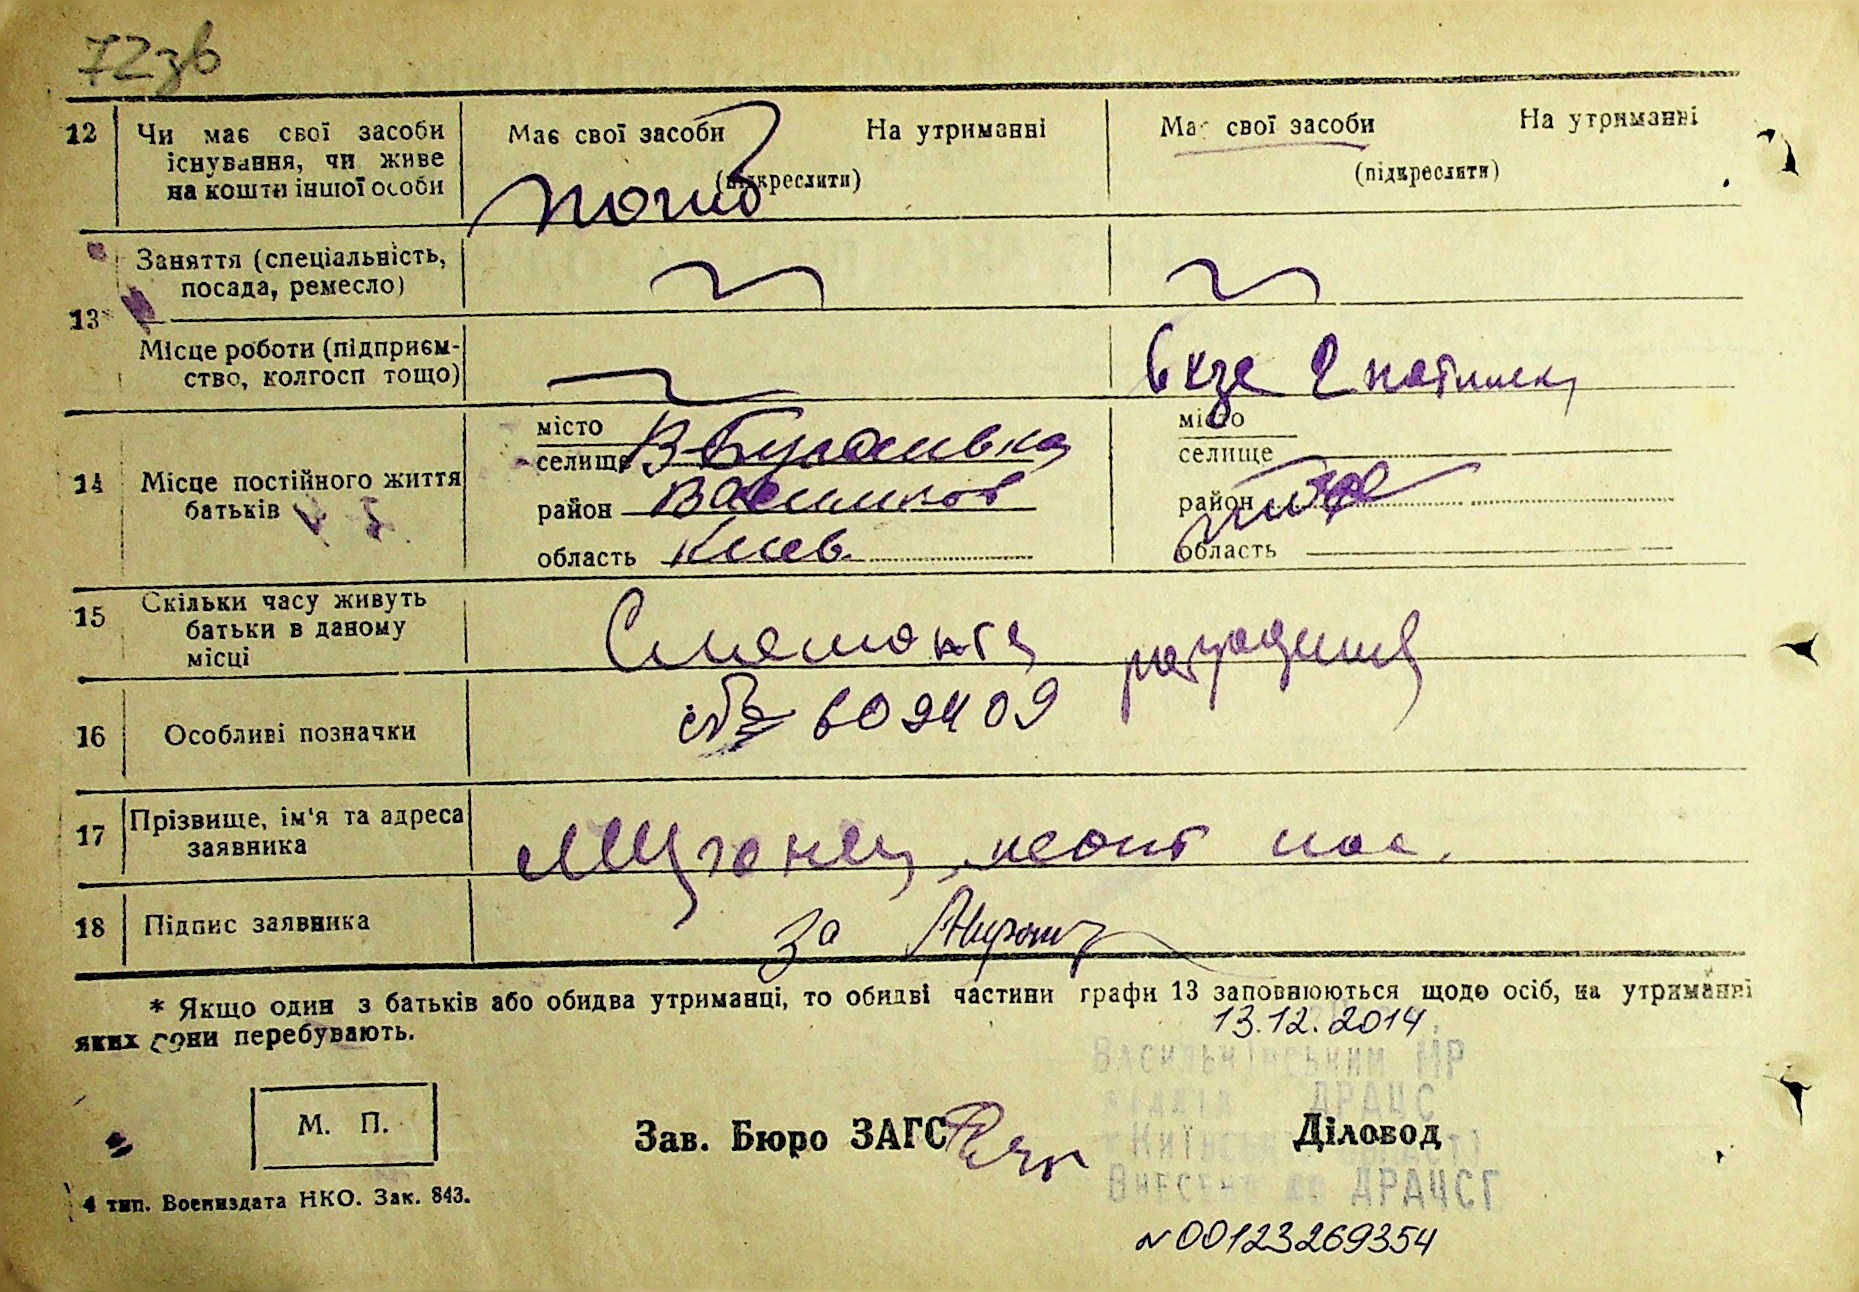 72зв
12 Чи має свої засоби Має свої засоби На утриманні Має свої засоби На утриманні
існування, чи живе (підкреслити) (підкреслити)
на кошти іншої особи погиб
Заняття (спеціальність,
посада, ремесло)
13*
Місце роботи (підприєм-
ство, колгосп тощо)
місто В-Бугаивка місто
селище селище
14 Місце постійного життя
батьків
район Васильков район
область Киев. область
15 Скільки часу живуть
батьки в даному
місці
16 Особливі позначки 609409
17 Прізвище, ім'я та адреса
заявника
18 Підпис заявника за
* Якщо один з батьків або обидва утриманці, то обидві частини графи 13 заповнюються щодо осіб, на утриманні
яких вони перебувають.
13.12.2014
Васильківським МР
відділ ДРАЦС
Київській області
Внесено до ДРАЦСГ
М. П.
Зав. Бюро ЗАГС Діловод
4 тип. Воениздата НКО. Зак. 843.
№00123269354